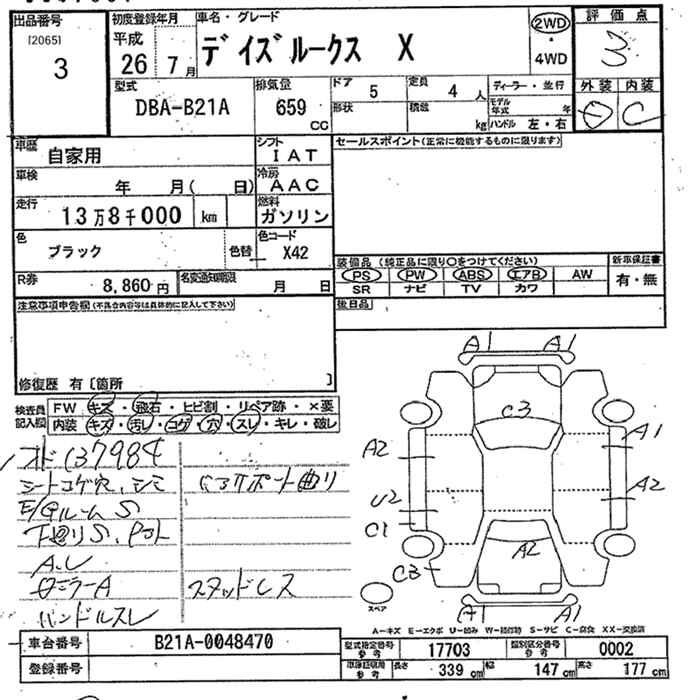 出品番号
[2065]
3
初度登録年月
平成
26年 7月
車名・グレード
デイズルークス X
2WD
・
4WD
評価点
3
型式
DBA-B21A
排気量
659
CC
ドア 5
定員 4人
形状
積載 kg
ディーラー・並行
モデル年式 年
ハンドル 左・右
外装 内装
D C
車歴 自家用
シフト IAT
車検 年 月( 日)
冷房 AAC
走行 13万8千000 km
燃料 ガソリン
色 ブラック 色替
色コード X42
R券 8,860円
名変通知期限 月 日
セールスポイント(正常に機能するものに限ります)
装備品 (純正品に限り○をつけてください)
新車保証書
PS PW ABS エアB AW
有・無
SR ナビ TV カワ
後日品
注意事項申告欄(不具合内容等は具体的に記入して下さい)
修復歴 有 [箇所 ]
検査員
記入欄
FW キズ・飛石・ヒビ割・リペア跡・×要
内装 キズ・汚レ・コゲ・穴・スレ・キレ・破レ
オド137984
シートコゲ穴、シミ
コアサポート曲り
E/Gルーム S
下回りS、
スタッドレス
ハンドルスレ
A1 A1
C3
A2 A1
U2 A2
C1
C3 A2
A1 A1
スペア
A-キズ E-エクボ U-凹み W-補修跡 S-サビ C-腐食 XX-交換済
車台番号 B21A-0048470
登録番号
型式指定番号 参考 17703
類別区分番号 参考 0002
車庫証明用 参考 長さ 339cm 幅 147cm 高さ 177cm